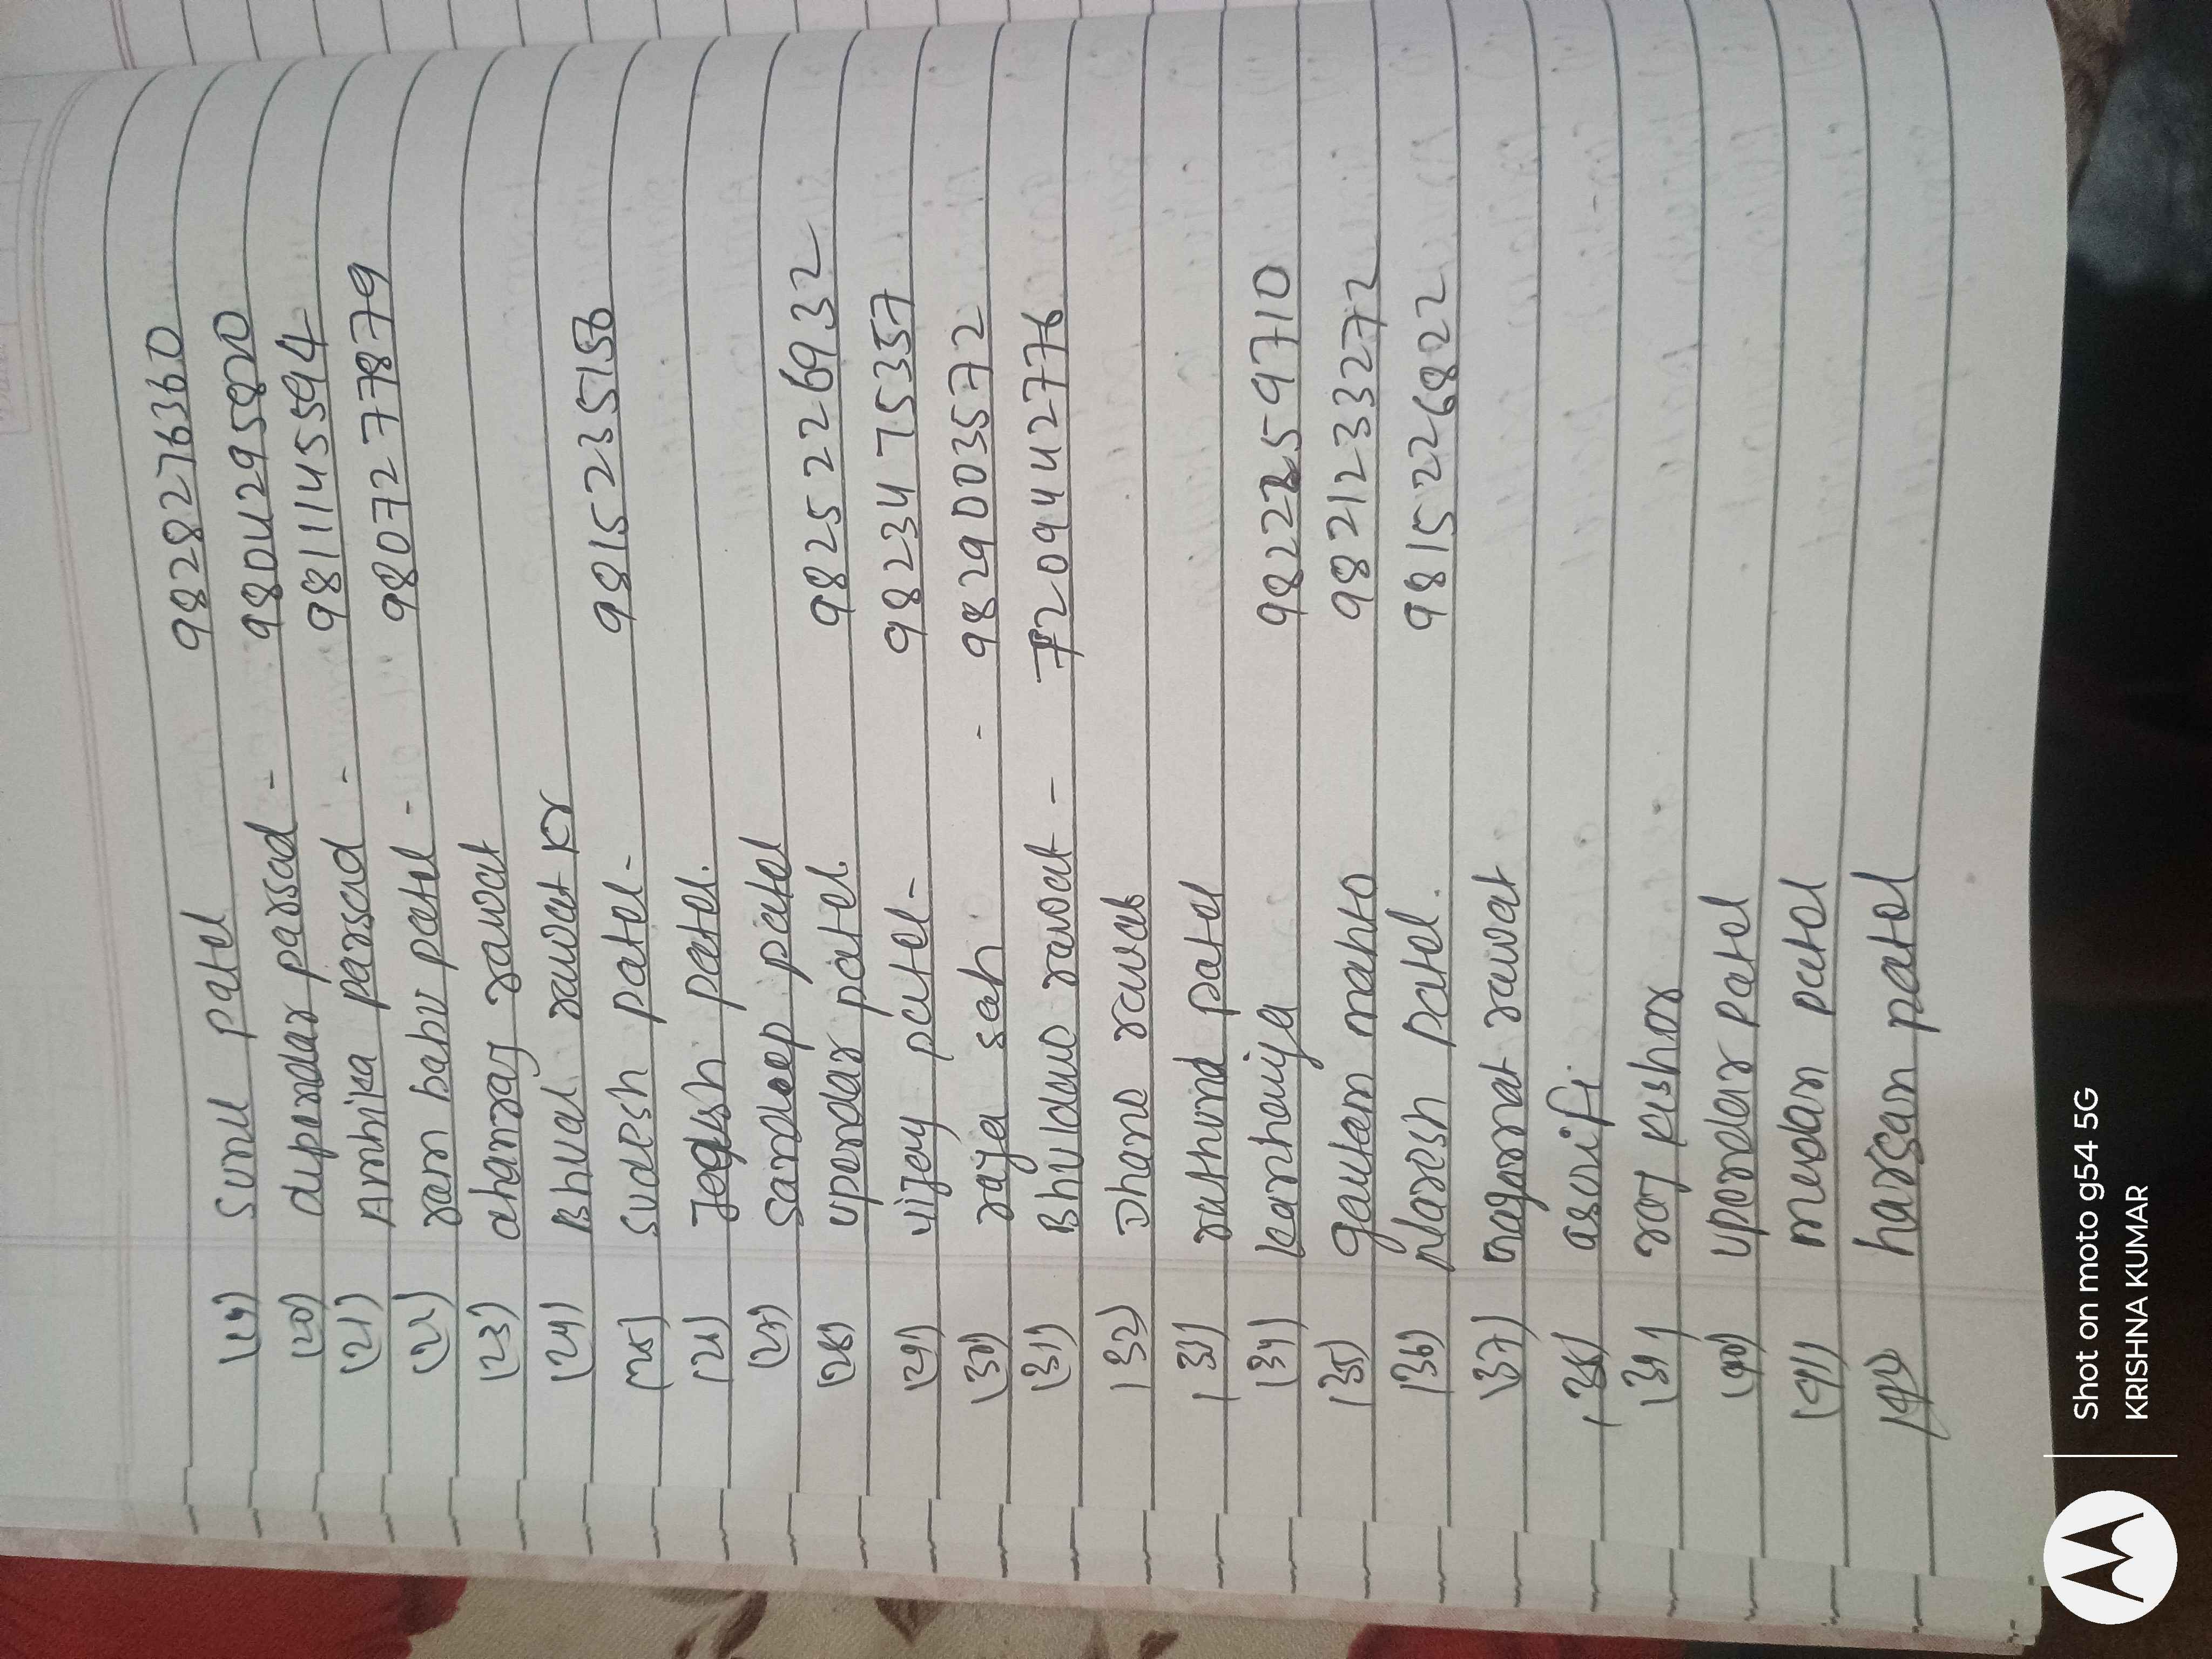 (19) sunil patel 9828276360
(20) dupendar parsad - 9804295820
(21) Ambika parsad - 9811145594
(22) ram babu patel - 9807277879
(23) dhanray rawat
(24) Bhual rawat kr
(25) sudesh patel - 9815235156
(26) patel.
(27) sandeep patel
(28) upendar patel. 9825226932
(29) vijay patel - 9823475357
(30) raja sah - 9829003572
(31) Bhuldano rawat - 7209442776
(32) Dhano rawat
(33) patel
(34) kanhaiya 982259710
(35) gautam mahto 9821233272
(36) Naresh patel. 9815226822
(37) nagannat rawat
(38) asarifi
(39) raj kishor
(40) upendar patel
(41) madan patel
(42) harsan patel
Shot on moto g54 5G
KRISHNA KUMAR